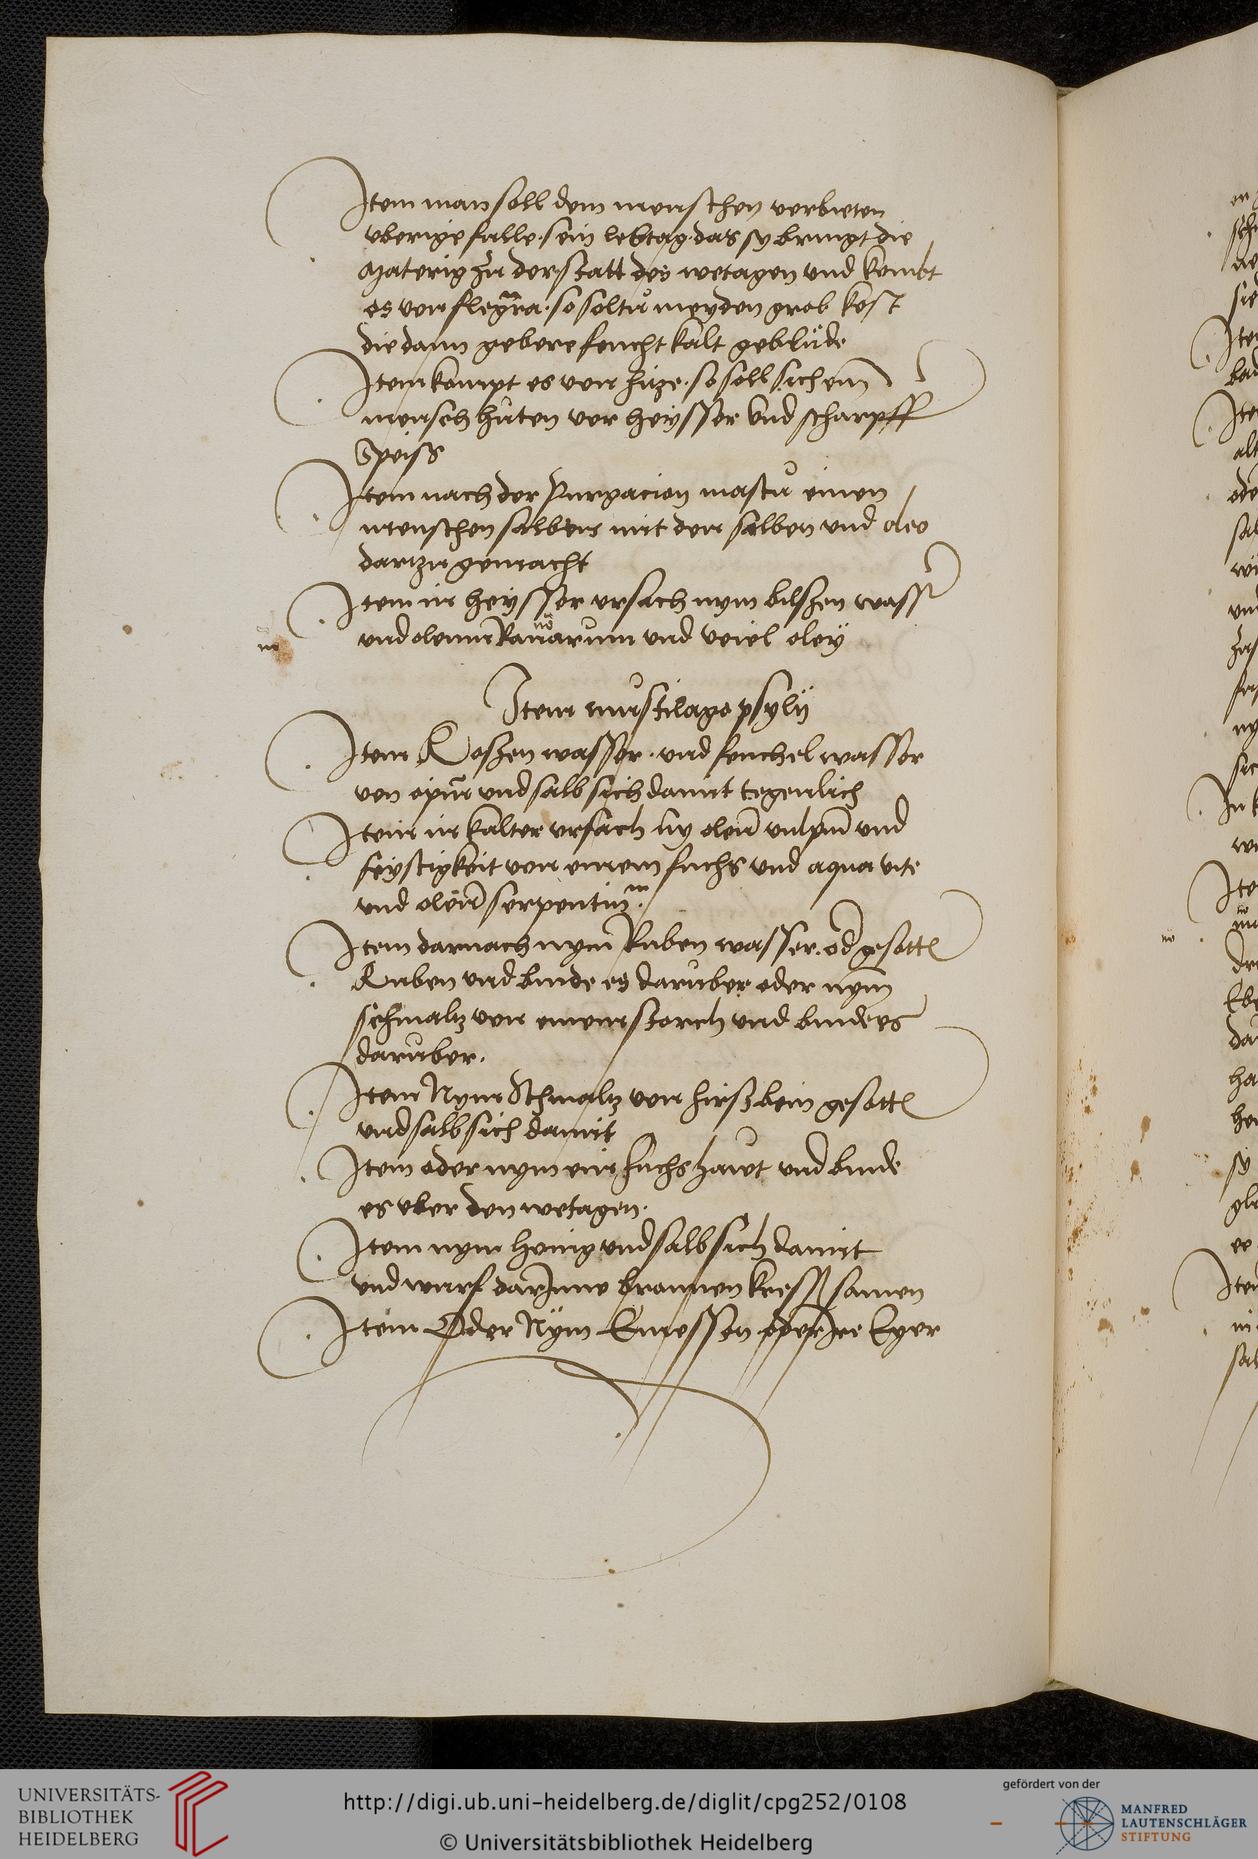 Item man soll dem menschen verbieten
vberige fulle sein lebtag das sy bringt die
Materig zu der statt des wetagen vnd kombt
es von flegma so soltu meyden grob kost
die dann gebere feucht kalt geblüde
Item kompt es von hitze so soll sich ein
mensch hüten vor heysser vnd scharpff
Speiss
Item nach der Purgacion mastu einen
menschen salben mit den salben vnd oleo
dartzu gemacht
Item in heysser vrsach nym bilszen wasser
vnd oleum Ranarum vnd veiel oley
Item muscilago psylij
Item Roszen wasser vnd fenchel wasser
von opium vnd salb sich damit tegenlich
Item in kalter vrsach ny oleum vulpium vnd
feystigkeit von einem fuchs vnd aqua vite
vnd oleum serpentin
Item darnach nym Ruben wasser od gesotten
Ruben vnd binde es daruber oder nym
schmaltz von einem storch vnd bind es
daruber.
Item Nym Schmaltz von hirszbein gesotten
vnd salb sich damit
Item oder nym ein fuchs hawt vnd binde
es vber den wetagen.
Item nym honig vnd salb sich damit
vnd wurf darInne bronnen kressz samen
Item Oder Nym Emessen oder Ire Eyer
UNIVERSITÄTS-
BIBLIOTHEK
HEIDELBERG
http://digi.ub.uni-heidelberg.de/diglit/cpg252/0108
© Universitätsbibliothek Heidelberg
gefördert von der
MANFRED
LAUTENSCHLÄGER
STIFTUNG